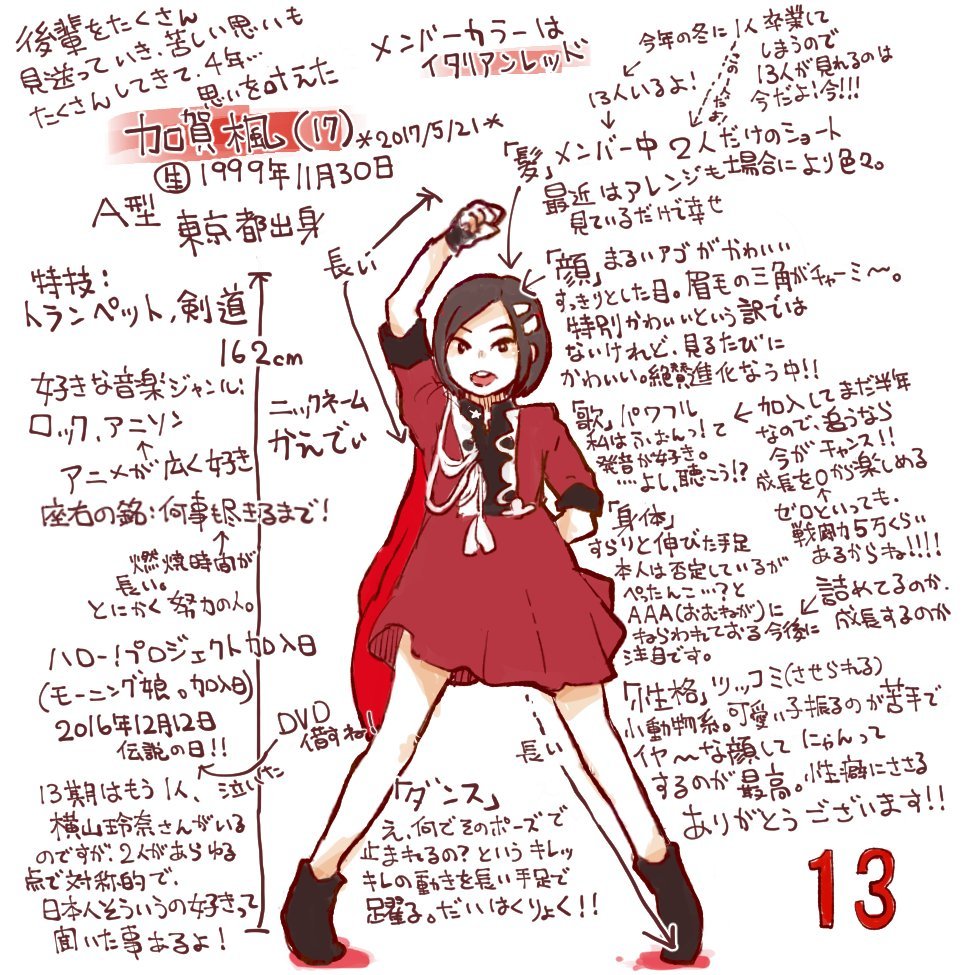 後輩をたくさん
見送っていき、苦しい思いも
たくさんしてきて、4年…
思いを叶えた
加賀楓(17)*2017/5/21*
生 1999年11月30日
A型
東京都出身
メンバーカラーは
イタリアンレッド
今年の冬に1人卒業して
しまうので
13人が見れるのは
今だよ!今!!!
13人いるよ!
「髪」メンバー中2人だけのショート
最近はアレンジも場合により色々。
見ているだけで幸せ
長い
「顔」まるいアゴがかわいい
すっきりとした目。眉毛の三角がチャーミ〜。
特別かわいいという訳では
ないけれど、見るたびに
かわいい。絶賛進化なう中!!
特技:
トランペット,剣道
162cm
好きな音楽ジャンル:
ロック,アニソン
アニメが広く好き
座右の銘:何事も尽きるまで!
燃焼時間が
長い。
とにかく努力の人。
ニックネーム
かえでぃ
「歌」パワフル
私はふぉんっ!て
発音が好き。
……よし、聴こう!?
加入してまだ半年
なので、追うなら
今がチャンス!!
成長を0から楽しめる
ゼロといっても、
戦闘力5万くらい
あるからね!!!!
「身体」
すらりと伸びた手足
本人は否定しているが
ぺったんこ…?と
AAA(おむねが)に
ねらわれており今後に
注目です。
詰めてるのか、
成長するのか
ハロー!プロジェクト加入日
(モーニング娘。加入日)
2016年12月12日
伝説の日!!
DVD
借すね!
泣いた
13期はもう1人、
横山玲奈さんがいる
のですが、2人があらゆる
点で対称的で、
日本人そういうの好きって
聞いた事あるよ!
「ダンス」
え、何でそのポーズで
止まれるの?というキレッ
キレの動きを長い手足で
躍る。だいはくりょく!!
長い
「性格」ツッコミ(させられる)
小動物系。可愛い子振るのが苦手で
イヤ〜な顔して にゃんって
するのが最高。性癖にささる
ありがとうございます!!
13